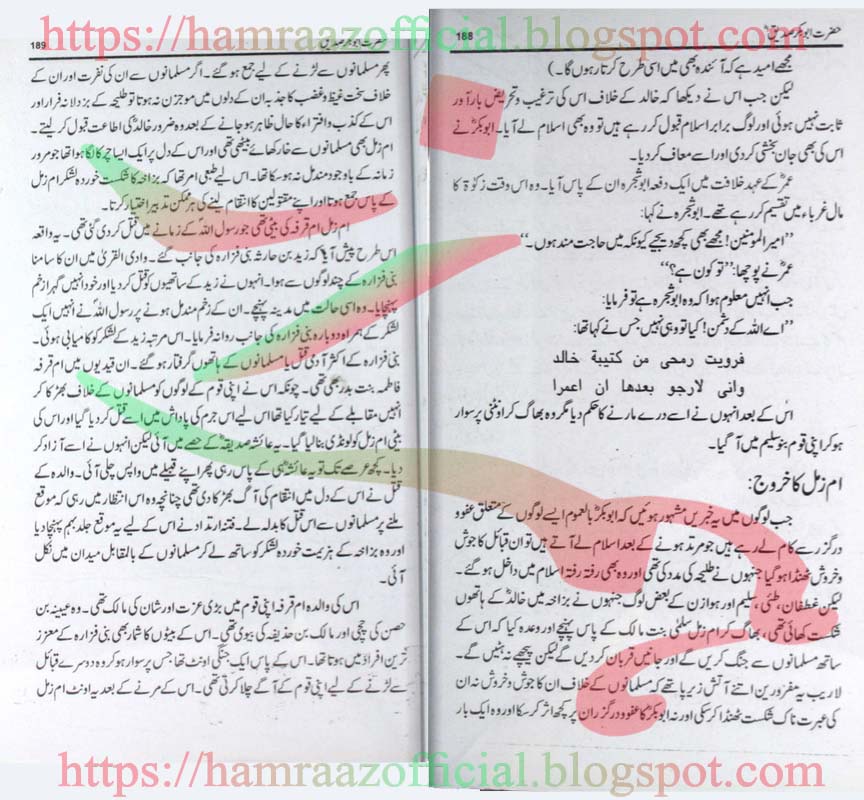 https://hamraazofficial.blogspot.com
حضرت ابوبکر صدیقؓ 188
مجھے امید ہے کہ آئندہ بھی میں اسی طرح کرتا رہوں گا۔)
لیکن جب اس نے دیکھا کہ خالد کے خلاف اس کی ترغیب و تحریض بار آور
ثابت نہیں ہوئی اور لوگ برابر اسلام قبول کر رہے ہیں تو وہ بھی اسلام لے آیا۔ ابوبکرؓ نے
اس کی بھی جان بخشی کر دی اور اسے معاف کر دیا۔
عمرؓ کے عہد خلافت میں ایک دفعہ ابوشجرہ ان کے پاس آیا۔ وہ اس وقت زکوٰۃ کا
مال غرباء میں تقسیم کر رہے تھے۔ ابوشجرہ نے کہا:
’’امیر المومنین! مجھے بھی کچھ دیجیے کیونکہ میں حاجت مند ہوں۔‘‘
عمرؓ نے پوچھا: ’’تو کون ہے؟‘‘
جب انہیں معلوم ہوا کہ وہ ابوشجرہ ہے تو فرمایا:
’’اے اللہ کے دشمن! کیا تو وہی نہیں جس نے کہا تھا:
فرویت رمحی من کتیبة خالد
وانی لارجو بعدها ان اعمرا
اس کے بعد انہوں نے اسے درے مارنے کا حکم دیا مگر وہ بھاگ کر اونٹنی پر سوار
ہو کر اپنی قوم بنو سلیم میں آ گیا۔
ام زمل کا خروج:
جب لوگوں میں یہ خبریں مشہور ہوئیں کہ ابوبکرؓ بالعموم ایسے لوگوں کے متعلق عفو و
درگزر سے کام لے رہے ہیں جو مرتد ہونے کے بعد اسلام لے آتے ہیں تو ان قبائل کا جوش
و خروش ٹھنڈا ہو گیا جنہوں نے طلیحہ کی مدد کی تھی اور وہ بھی رفتہ رفتہ اسلام میں داخل ہو گئے۔
لیکن غطفان، طئی، سلیم اور ہوازن کے بعض لوگ جنہوں نے بزاخہ میں خالدؓ کے ہاتھوں
شکست کھائی تھی، بھاگ کر ام زمل سلمیٰ بنت مالک کے پاس پہنچے اور وعدہ کیا کہ اس کے
ساتھ مسلمانوں سے جنگ کریں گے اور جانیں قربان کر دیں گے لیکن پیچھے نہ ہٹیں گے۔
لا ریب یہ مفرورین اتنے آتش زیرپا تھے کہ مسلمانوں کے خلاف ان کا جوش و خروش نہ ان
کی عبرت ناک شکست ٹھنڈا کر سکی اور نہ ابوبکرؓ کا عفو و درگزر ان پر کچھ اثر کر سکا اور وہ ایک بار
حضرت ابوبکر صدیقؓ 189
پھر مسلمانوں سے لڑنے کے لیے جمع ہو گئے۔ اگر مسلمانوں سے ان کی نفرت اور ان کے
خلاف سخت غیظ و غضب کا جذبہ ان کے دلوں میں موجزن نہ ہوتا تو طلیحہ کے بزدلانہ فرار اور
اس کے کذب و افتراء کا حال ظاہر ہو جانے کے بعد وہ ضرور خالدؓ کی اطاعت قبول کر لیتے۔
ام زمل بھی مسلمانوں سے خار کھائے بیٹھی تھی اور اس کے دل پر ایک ایسا چرکا لگا ہوا تھا جو مرور
زمانہ کے باوجود مندمل نہ ہو سکا تھا۔ اس لیے طبعی امر تھا کہ بزاخہ کا شکست خوردہ لشکر ام زمل
کے پاس جمع ہوتا اور اپنے مقتولین کا انتقام لینے کی ہر ممکن تدبیر اختیار کرتا۔
ام زمل ام قرفہ کی بیٹی تھی جو رسول اللہؐ کے زمانے میں قتل کر دی گئی تھی۔ یہ واقعہ
اس طرح پیش آیا کہ زید بن حارثہ بنی فزارہ کی جانب گئے۔ وادی القریٰ میں ان کا سامنا
بنی فزارہ کے چند لوگوں سے ہوا۔ انہوں نے زید کے ساتھیوں کو قتل کر دیا اور خود انہیں گہرا زخم
پہنچایا۔ وہ اسی حالت میں مدینہ پہنچے۔ ان کے زخم مندمل ہونے پر رسول اللہؐ نے انہیں ایک
لشکر کے ہمراہ دوبارہ بنی فزارہ کی جانب روانہ فرمایا۔ اس مرتبہ زید کے لشکر کو کامیابی ہوئی۔
بنی فزارہ کے اکثر آدمی قتل یا مسلمانوں کے ہاتھوں گرفتار ہو گئے۔ ان قیدیوں میں ام قرفہ
فاطمہ بنت بدر بھی تھی۔ چونکہ اس نے اپنی قوم کے لوگوں کو مسلمانوں کے خلاف بھڑکا کر
انہیں مقابلے کے لیے تیار کیا تھا اس لیے اس جرم کی پاداش میں اسے قتل کر دیا گیا اور اس کی
بیٹی ام زمل کو لونڈی بنا لیا گیا۔ یہ عائشہ صدیقہؓ کے حصے میں آئی لیکن انہوں نے اسے آزاد کر
دیا۔ کچھ عرصے تک تو یہ عائشہؓ ہی کے پاس رہی پھر اپنے قبیلے میں واپس چلی آئی۔ والدہ کے
قتل نے اس کے دل میں انتقام کی آگ بھڑکا دی تھی چنانچہ وہ اس انتظار میں رہی کہ موقع
ملنے پر مسلمانوں سے اس قتل کا بدلہ لے۔ فتنہ ارتداد نے اس کے لیے یہ موقع جلد بہم پہنچا دیا
اور وہ بزاخہ کے ہزیمت خوردہ لشکر کو ساتھ لے کر مسلمانوں کے بالمقابل میدان میں نکل
آئی۔
اس کی والدہ ام قرفہ اپنی قوم میں بڑی عزت اور شان کی مالک تھی۔ وہ عیینہ بن
حصن کی چچی اور مالک بن حذیفہ کی بیوی تھی۔ اس کے بیٹوں کا شمار بھی بنی فزارہ کے معزز
ترین افراد میں ہوتا تھا۔ اس کے پاس ایک جنگی اونٹ تھا جس پر سوار ہو کر وہ دوسرے قبائل
سے لڑنے کے لیے اپنی قوم کے آگے چلا کرتی تھی۔ اس کے مرنے کے بعد یہ اونٹ ام زمل
https://hamraazofficial.blogspot.com